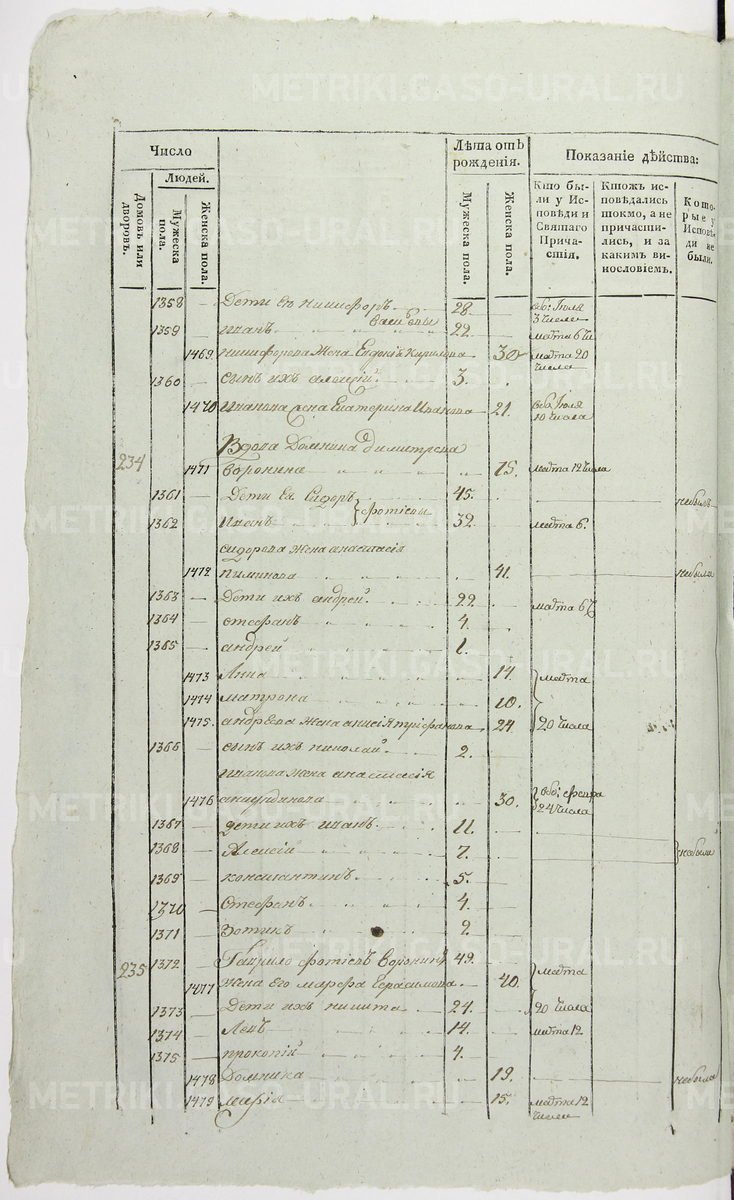 METRIKI.GASO-URAL.RU
Число
Лѣта отъ рожденія.
Показаніе дѣйства:
Домовъ или дворовъ.
Людей.
Мужеска пола.
Женска пола.
Мужеска пола.
Женска пола.
Кто были у Исповѣди и Святаго Причастія.
Ктожъ исповѣдались токмо, а не причастились, и за какимъ винословіемъ.
Которые у Исповѣди не были.
1358 — Дети его никифоръ 28.
1359 — иванъ 22. марта 6
1469. никифорова жена Евдокія Кирилова 30 марта 20 числа
1360 — сынъ ихъ алексій 3.
1470 иванова жена Екатерина Иванова 21. 10 числа
Вдова Домнина димитрева
234 1471 воронина 75. марта 12 числа
1361 — Дети Ея Сидоръ 45. небылъ
1362 Иванъ фотіевы 32. марта 6.
сидорова жена анастасія
1472 пиминова 41. небыла
1363 — Дети ихъ андрей 22. марта 6
1364 — стефанъ 4.
1365 — андрей 1.
1473 Анна 14 марта
1474 матрона 10.
1475. андреева жена анисія трифанова 24 20 числа
1366 — сынъ ихъ николай 2.
иванова жена анастасія
1476 30. 24 числа
1367 — дети ихъ иванъ 11.
1368 — Алексій 7. небыли
1369 — константинъ 5.
1370 — Стефанъ 4.
1371 Зотикъ 2.
235 1372 — Гаврило фотіевъ воронинъ 49. марта
1477 жена Его марфа Герасимова 40.
1373 — Дети ихъ никита 24. 20 числа
1374 — Левъ 14. марта 12
1375 — прокопій 4.
1478 Домника 19. небыла
1479 марія 15. марта 12 числа